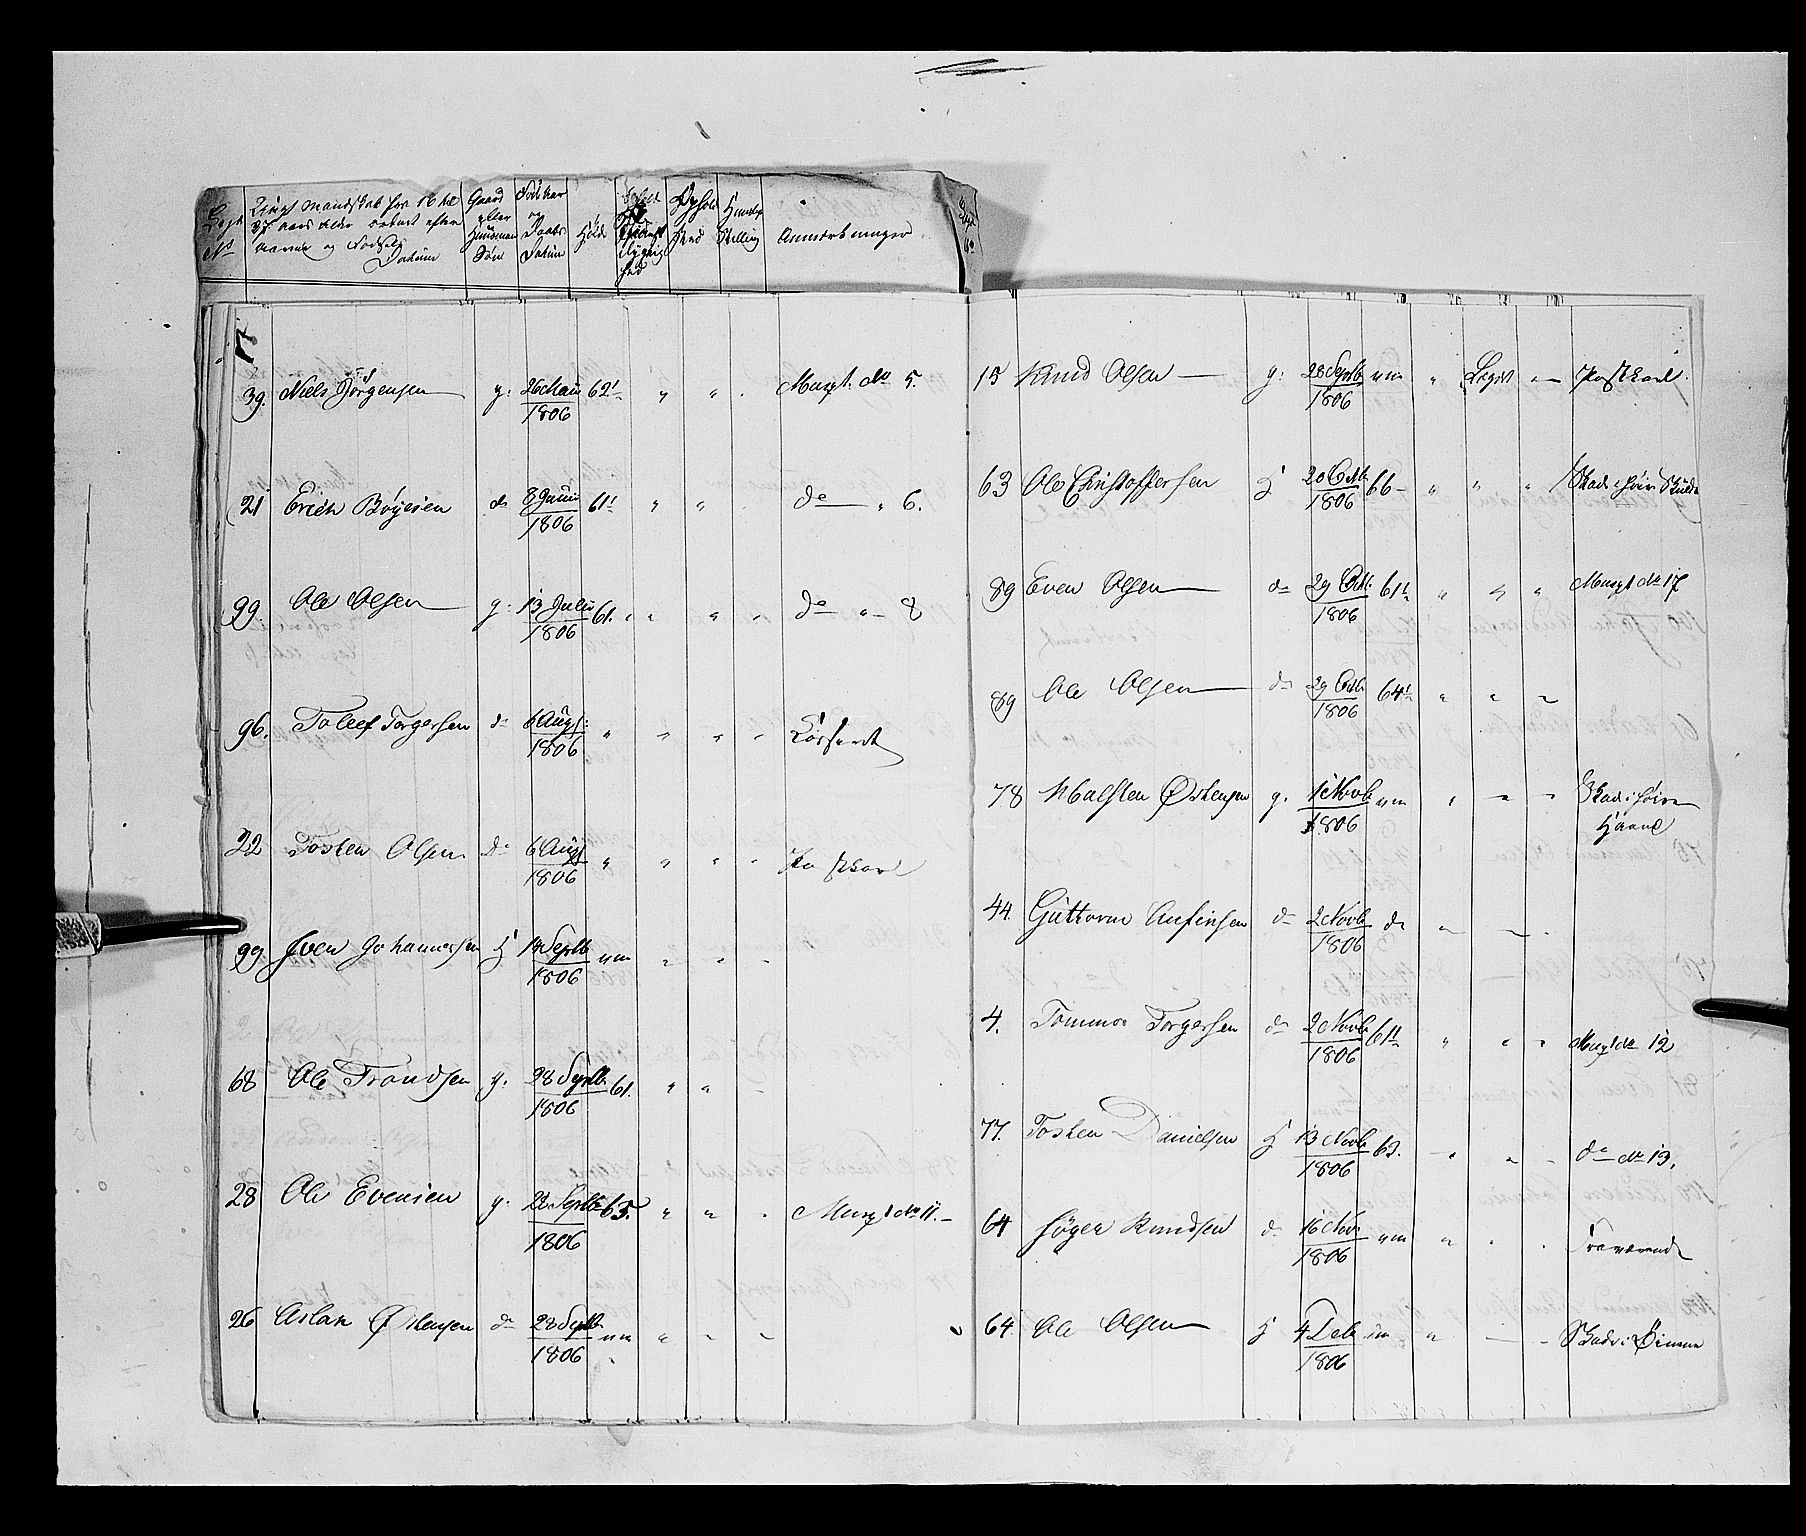 Legd
No
Ungt Mandskab fra 16 til
37 aars alder ordnet efter
navne og Fødsels
Datum
Gaard
eller
Huusmand
Søn
Født Aar
og
Daabs
Datum
Høide
Ophold
Sted
Anmærkninger
39. Niels Jørgensen g: 26 Maii 1806 62" " " . Mungt. No 5.
21 Erich Bøyesen do 8 Junii 1806 61" " " . do " 6.
99 Ole Olsen g: 13 Julii 1806 61. " " " do " 8
96. Tollef Torgersen do 6 Augs: 1806 " " " "
22 Tosten Olsen do 6 Augs 1806 " " " " Postkarl
99 Iven Johannessen H 14 Septb 1806 um " " "
68 Ole Trondsen g. 28 Septb 1806 61. " " "
28 Ole Evensen g. 28 Septb 1806 65. " " . Mungt No 11.
26 Aslak Østensen do 28 Septb 1806 um " " "
15 Knud Olsen g: 28 Septb 1806 um " Legd " Postkarl.
63 Ole Christoffersen H 20 Octb 1806 66 " " " Skade i høire
89 Even Olsen do 29 Octb. 1806 61" " " " Mungt No 17
89 Ole Olsen do 29 Octb. 1806 64" " " "
78 Halsten Østensen g. 1 Novb 1806 um " " " Skade i høire
Haand
44. Guttorm Anfinsen do 2 Novb 1806 do " " .
4. Tommas Torgersen do 2 Novb 1806 61" " " " Mungt No 12
77. Tosten Danielsen H 13 Novb 1806 63. " " " do No 13.
64 Høger Knudsen do 16 Nov 1806 um " . . Fraværende
64. Ole Olsen H 4 Deb 1806 um " " " Skade i Øinene